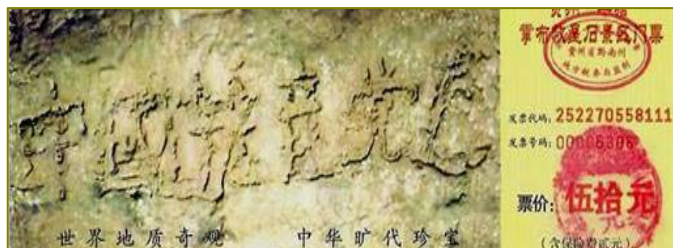 中國共产党亡
世界地质奇观 中华旷代珍宝
掌布救星石景区门票
贵州省黔南州
地方税务局监制
发票代码: 252270558111
发票号码: 00006306
票价: 伍拾元
(含保险费贰元)